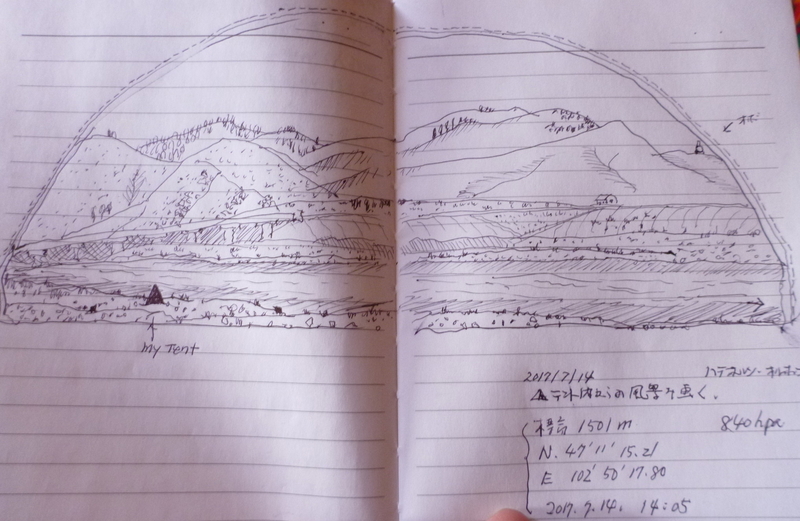 オボ
My Tent
2017/7/14
テント内からの風景を画く。
標高 1501 m
840 hpa
N. 47°11' 15.21
E 102° 50' 17.80
2017. 7. 14. 14:05